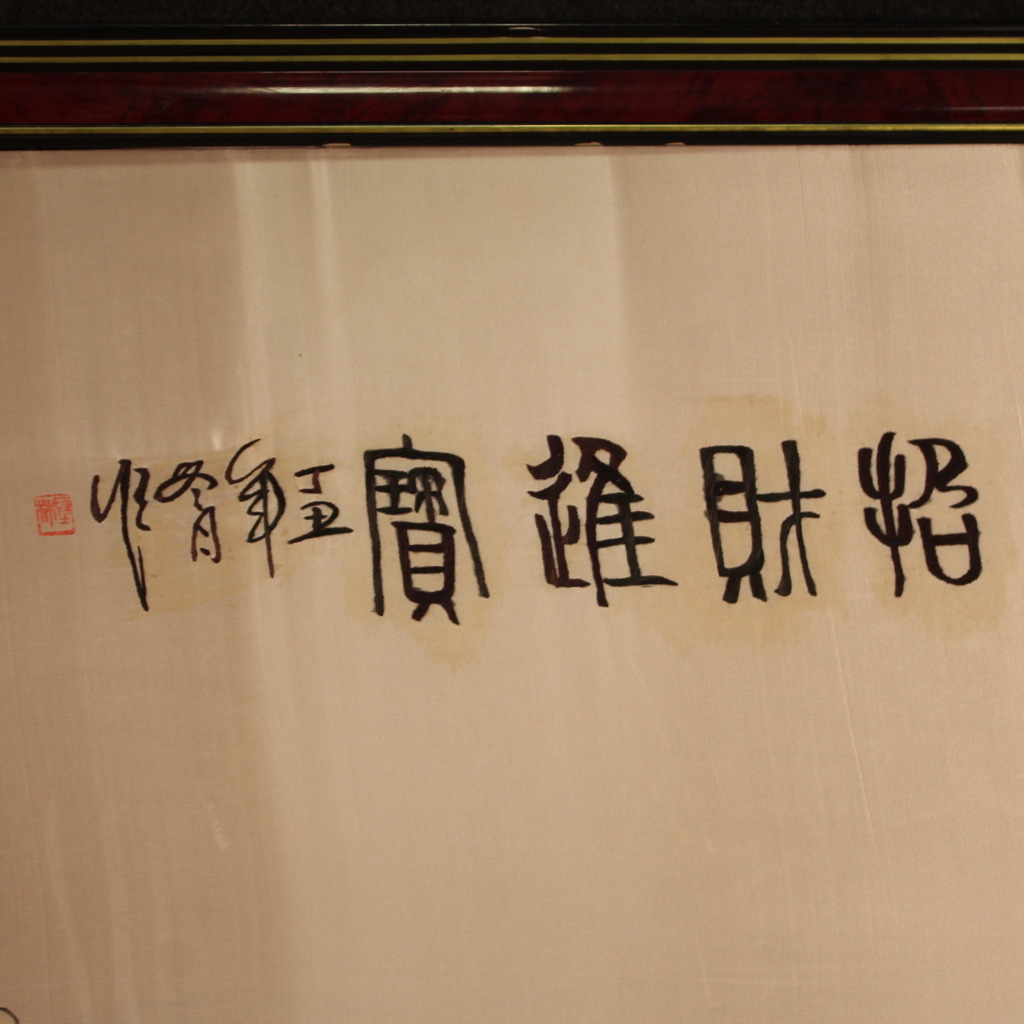 招財進寶
丁丑年冬月